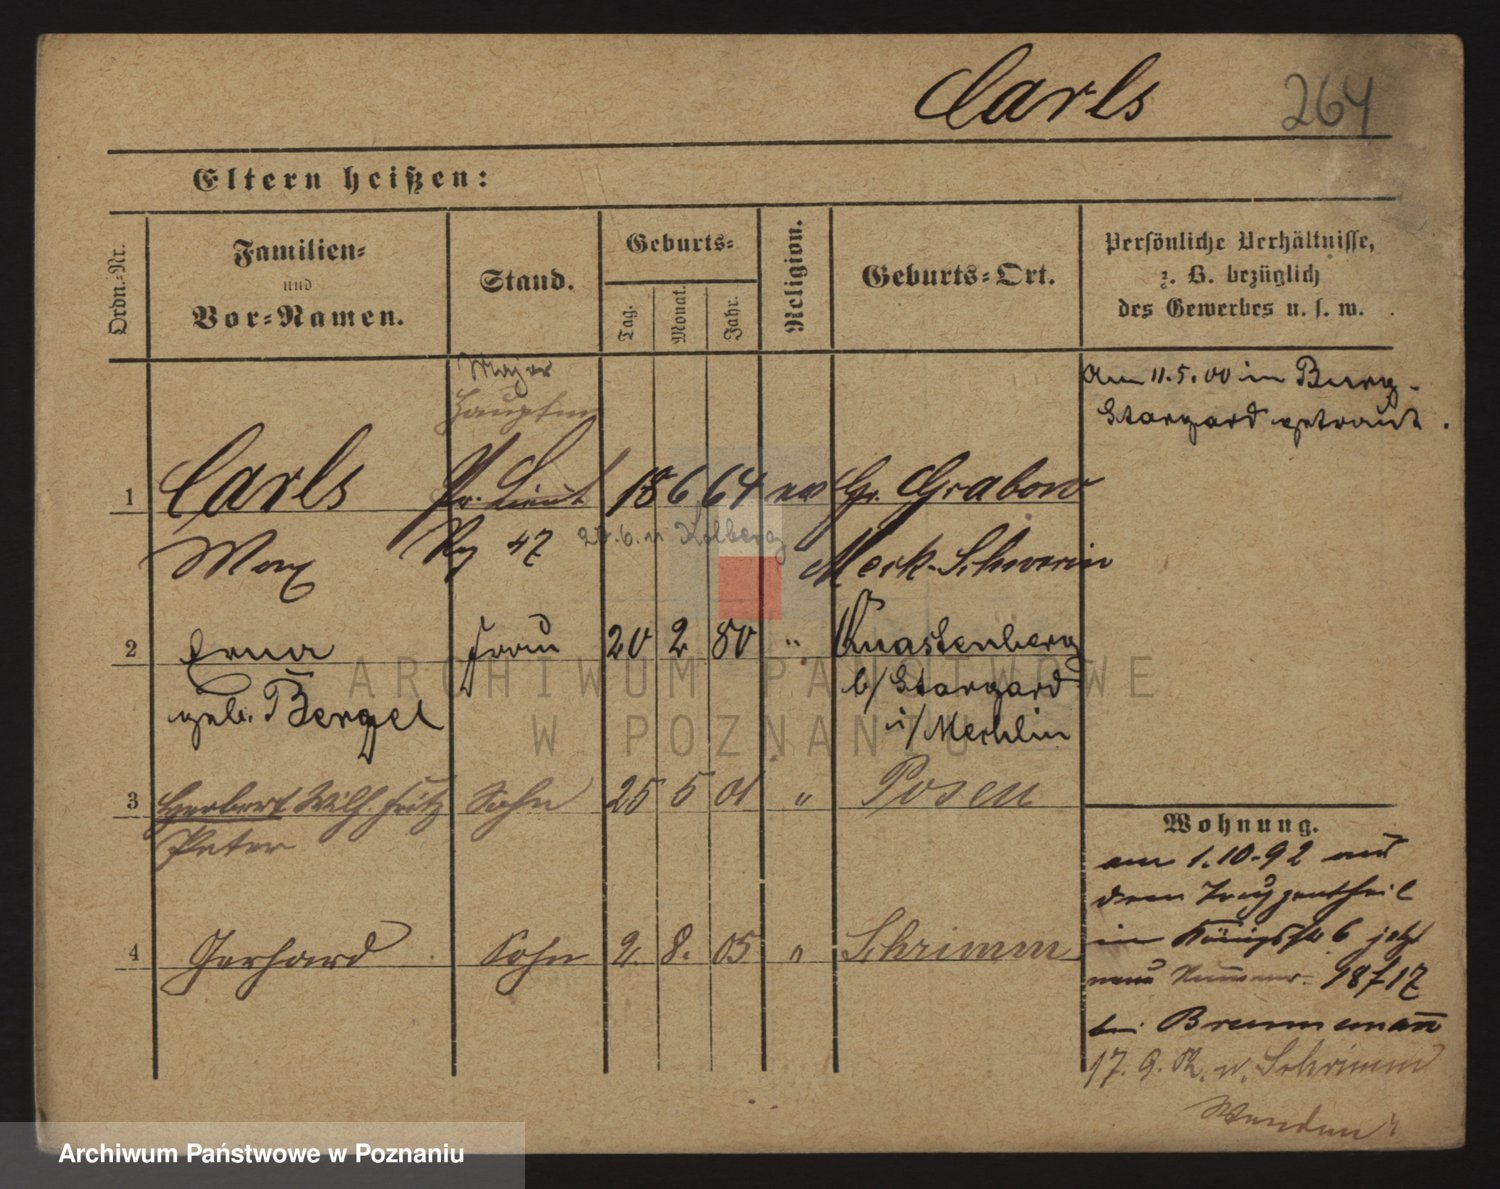 Carls 264
Eltern heißen:
Ordn.-Nr.
Familien-
und
Vor-Namen.
Stand.
Geburts-
Tag.
Monat.
Jahr.
Religion.
Geburts-Ort.
Persönliche Verhältnisse,
z. B. bezüglich
des Gewerbes u. s. w.
Major
Hauptm
Am 11.5.00 in Burg-
Stargard getraut.
1 Carls Pr. Lieut 18 6 64 ev Gr. Grabow
Max Rg 47 Kolberg Meck. Schwerin
2 Erna Frau 20 2 80 " Quastenberg
geb. Bergel b/ Stargard
i/ Mecklin
3 Herbert Wilh. Fritz Sohn 25 5 01 " Posen
Peter
4 Gerhard Sohn 2. 8. 05 " Schrimm
Wohnung.
am 1.10.92 aus
dem
in Königstr 6 jetzt
neue Nummer 18/17
bei Brummemann
17. 9. n. Schrimm
Wenden
ARCHIWUM PAŃSTWOWE
W POZNANIU
Archiwum Państwowe w Poznaniu